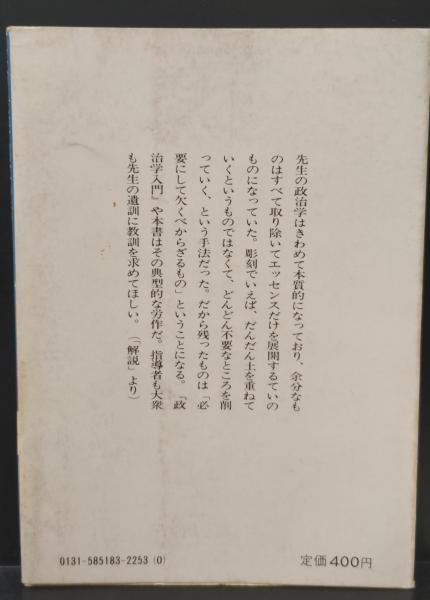 先生の政治学はきわめて本質的になっており、余分なも
のはすべて取り除いてエッセンスだけを展開するていの
ものになっていた。彫刻でいえば、だんだん土を重ねて
いくというものではなくて、どんどん不要なところを削
っていく、という手法だった。だから残ったものは「必
要にして欠くべからざるもの」ということになる。『政
治学入門』や本書はその典型的な労作だ。指導者も大衆
も先生の遺訓に教訓を求めてほしい。（「解説」より）
0131-585183-2253 (0)
定価 400円